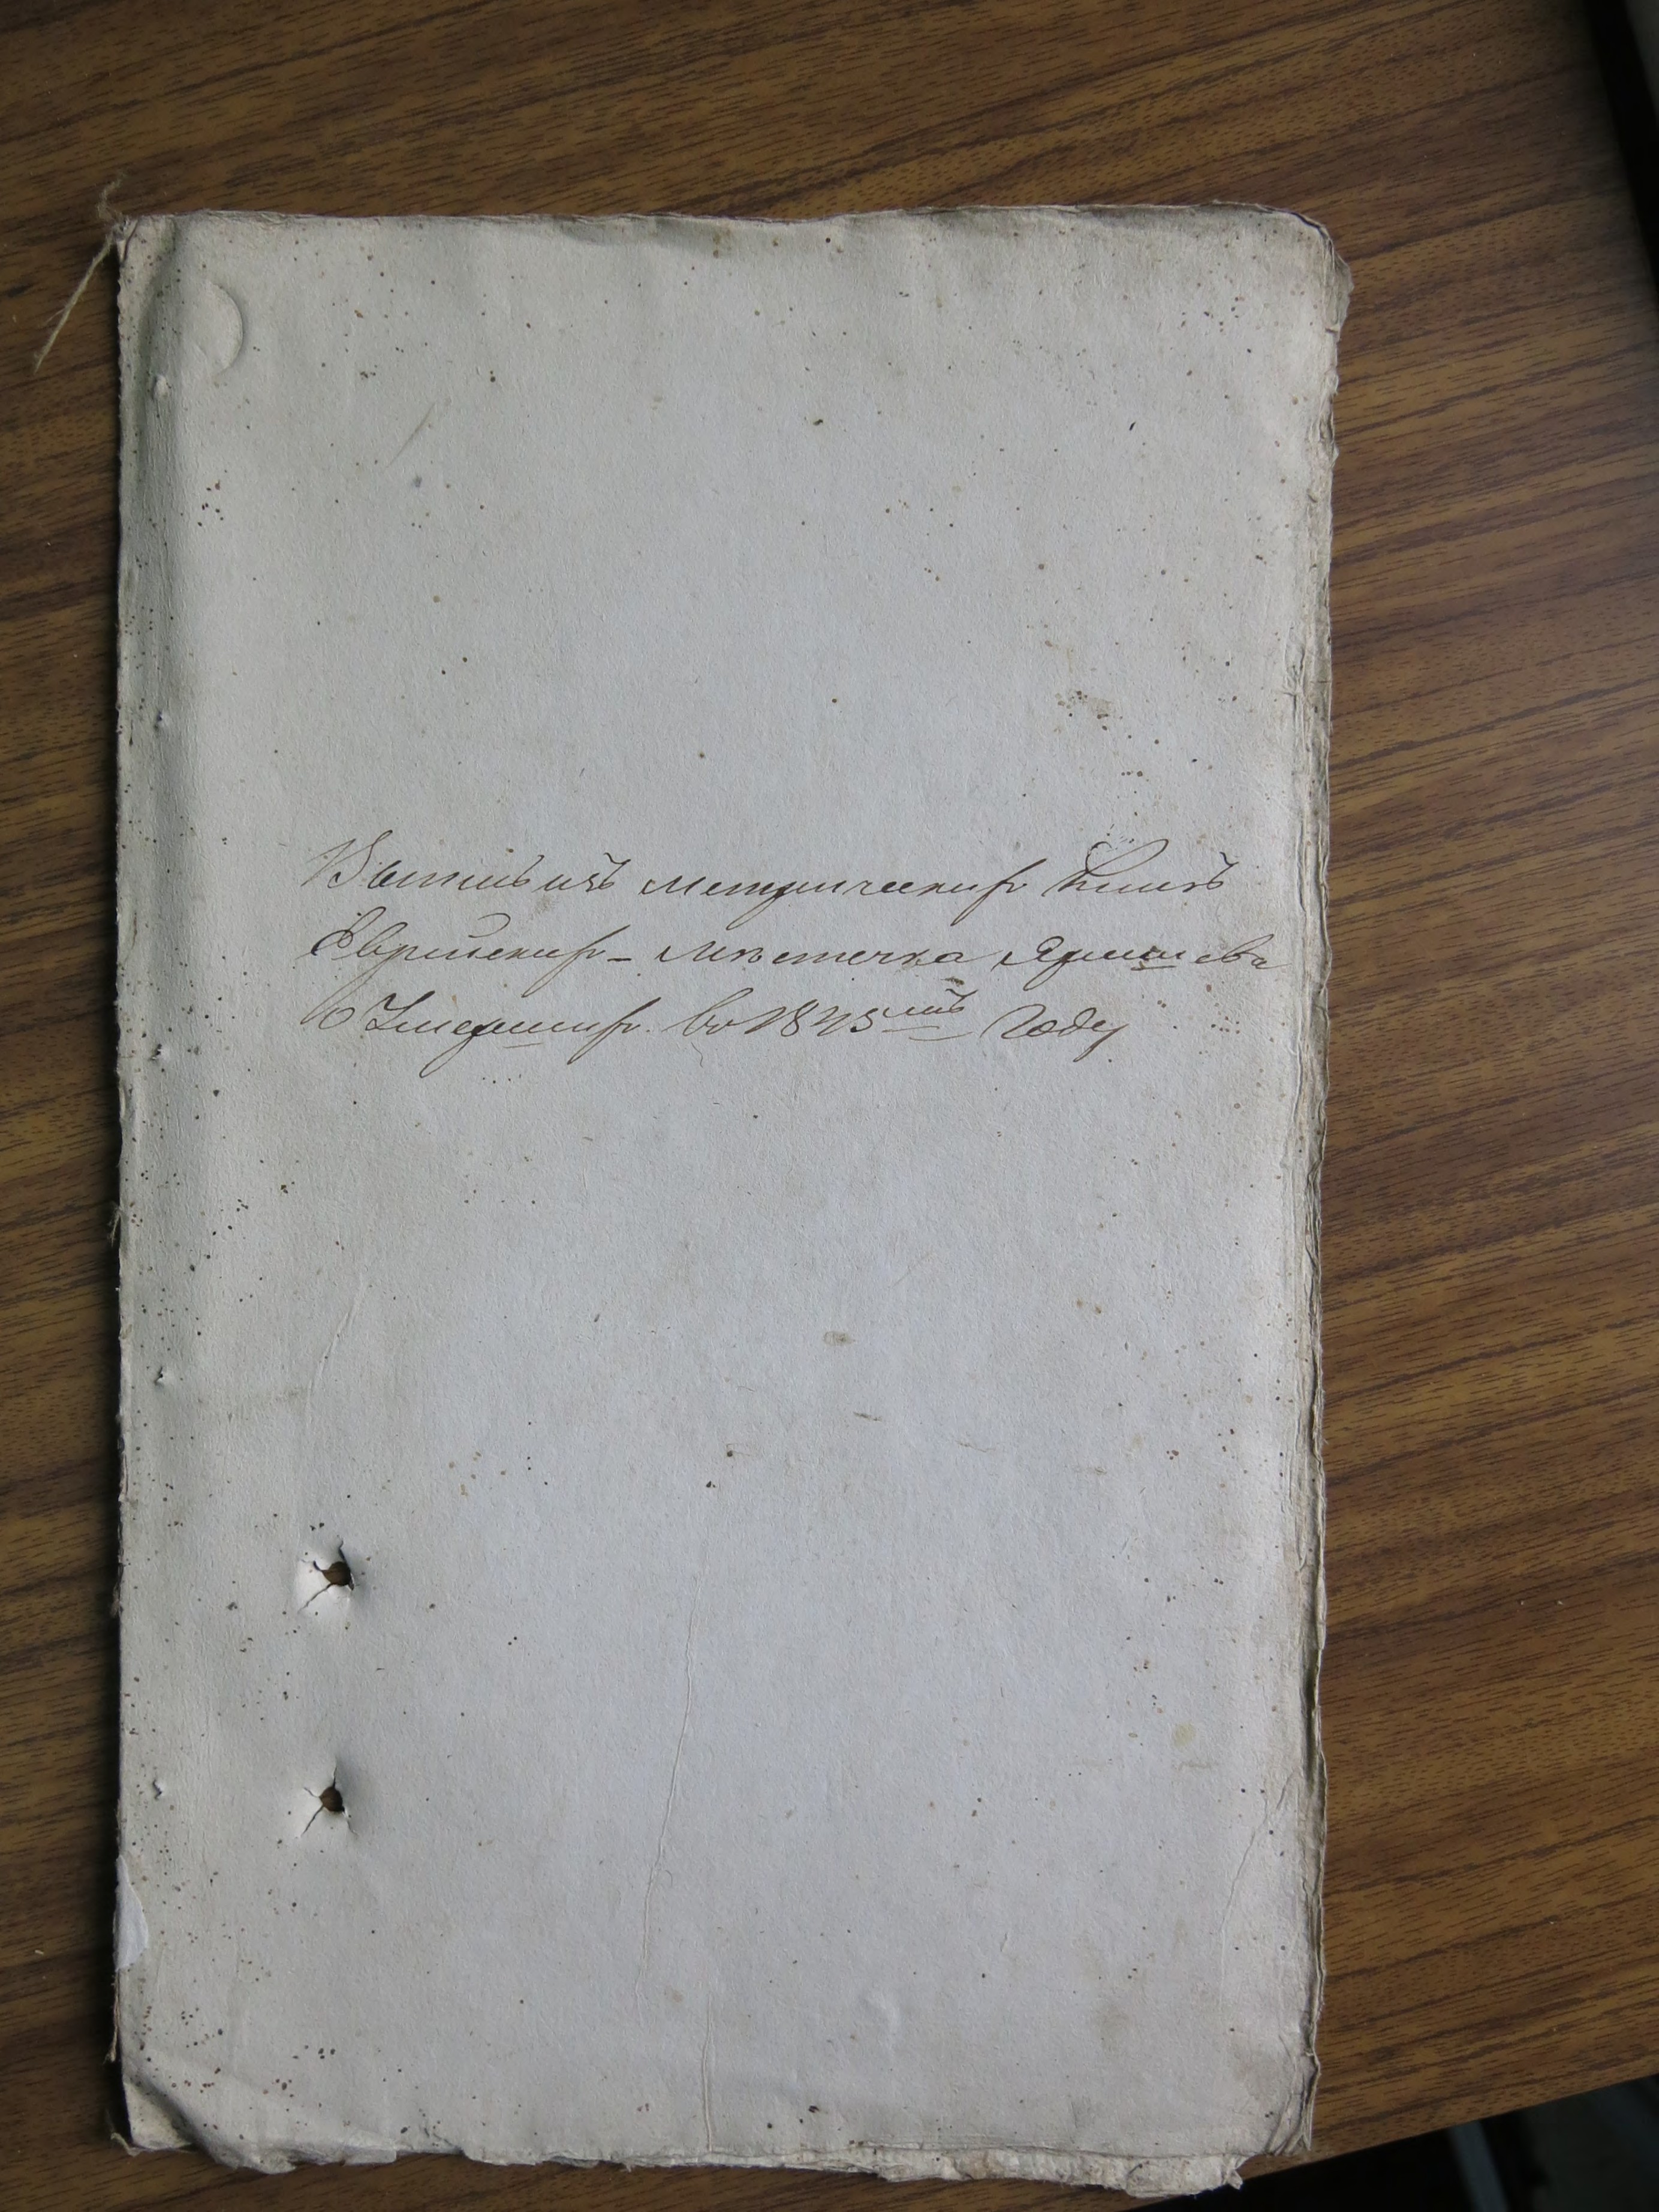 Выпись изъ метрическихъ книгъ
Еврейскихъ - мѣстечка Яришева
о Умершихъ во 1845мъ Году